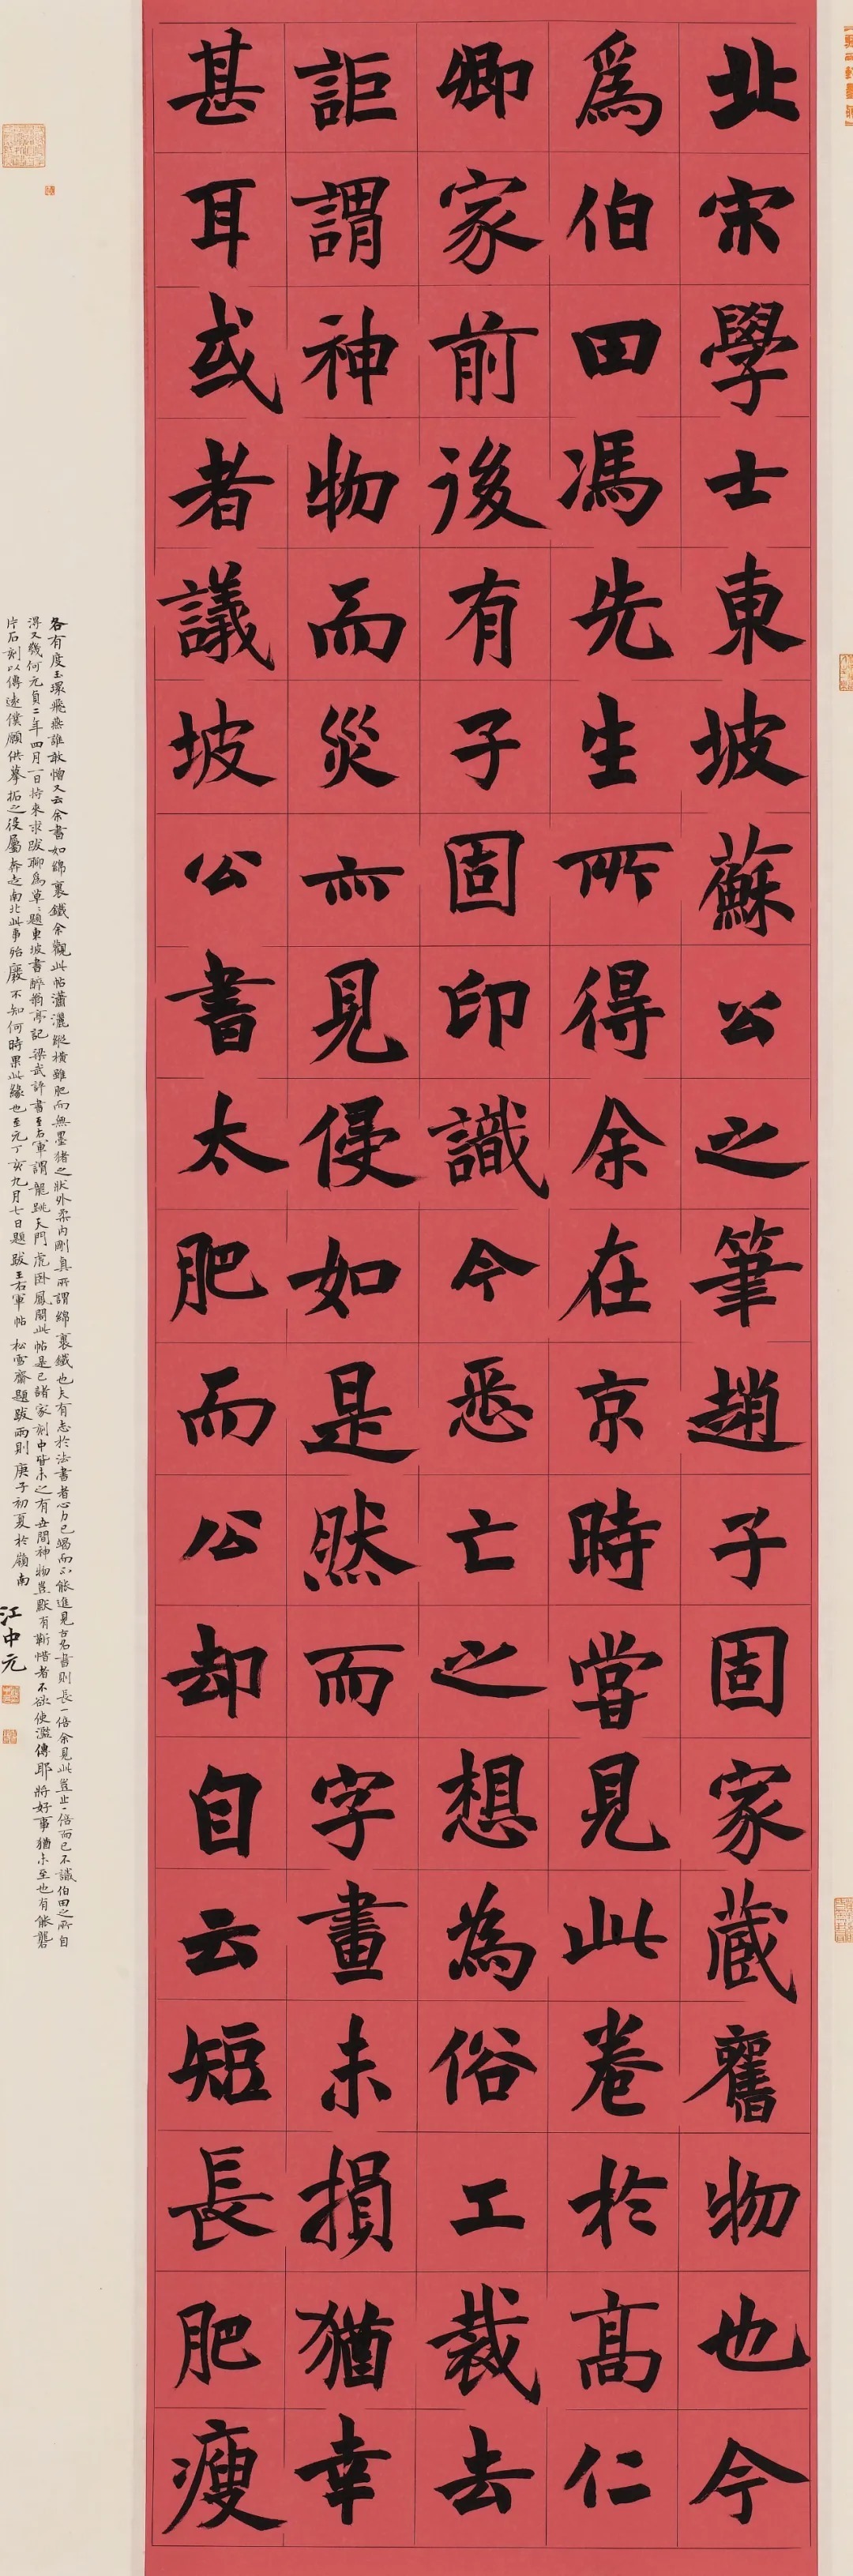 北宋學士東坡蘇公之筆趙子固家蔵舊物也今
爲伯田馮先生所得余在京時嘗見此卷於髙仁
卿家前後有子固印識今悉亡之想為俗工裁去
詎謂神物而災亦見侵如是然而字畫未損猶幸
甚耳或者議坡公書太肥而公却自云短長肥瘦
各有度玉環飛燕誰敢憎又云余書如綿裹鐵余觀此帖瀟灑縱橫雖肥而無墨猪之狀外柔内剛真所謂綿裹鐵也夫有志於法書者心力已竭而不能進見古名書則長一倍余見此豈止一倍而已不識伯田之所自
得又幾何元貞二年四月一日持來求跋聊為草草題東坡書醉翁亭記 梁武評書至右軍謂龍跳天門虎卧鳳閣此帖是已諸家刻中皆未之有世間神物豈厭有靳惜者不欲使濫傳耶將好事猶未至也有能礱
片石刻以傳遠僕願供摹拓之役屬奔走南北此事殆廢不知何時果此緣也至元丁亥九月七日題 跋王右軍帖 松雪齋題跋兩則 庚子初夏於嶺南
江中元